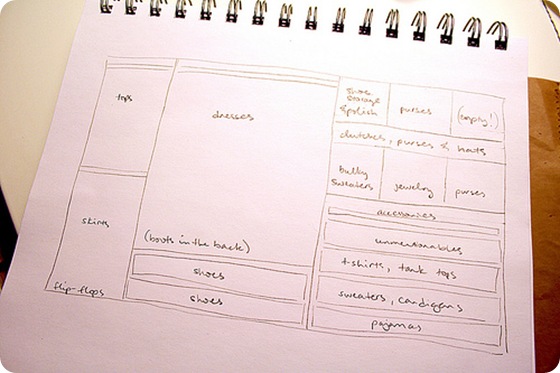 tops
skirts
flip-flops
dresses
(boots in the back)
shoes
shoes
shoe
storage
& polish
purses
(empty!)
clutches, purses & hats
bulky
sweaters
jewelry
purses
accessories
unmentionables
t-shirts, tank tops
sweaters, cardigans
pajamas